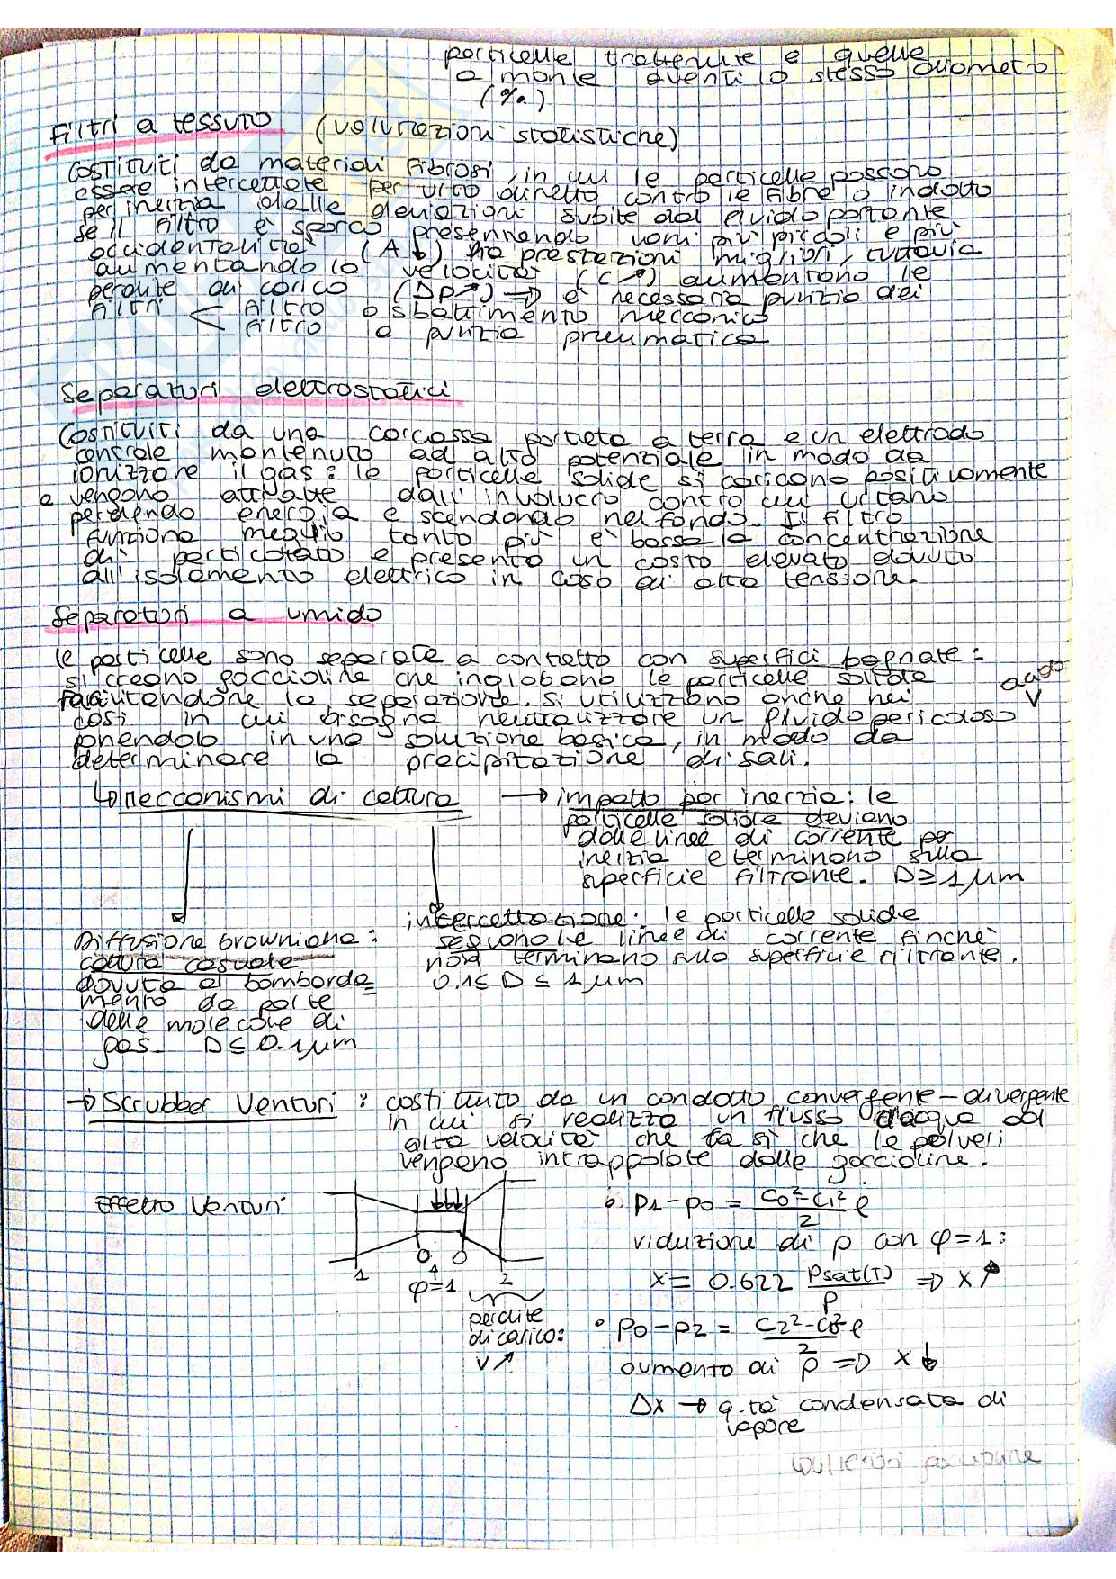 particelle trattenute e quelle
a monte aventi lo stesso diametro
(%)
Filtri a tessuto (valutazioni statistiche)
Costituiti da materiali fibrosi, in cui le particelle possono
essere intercettate per urto diretto contro le fibre o indotto
per inerzia dalle deviazioni subite dal fluido portante.
Se il filtro è sporco presentando vani più piccoli e più
accidentalità (A↓) ha prestazioni migliori, tuttavia
aumentando la velocità (c↗) aumentano le
perdite di carico (Δp↗) → è necessaria pulizia dei
filtri < filtro a sbattimento meccanico
filtro a pulizia pneumatica
Separatori elettrostatici
Costituiti da una carcassa portata a terra e un elettrodo
centrale mantenuto ad alto potenziale in modo da
ionizzare il gas: le particelle solide si caricano positivamente
e vengono attratte dall'involucro contro cui urtano
perdendo energia e scendendo nel fondo. Il filtro
funziona meglio tanto più è bassa la concentrazione
di particolato e presenta un costo elevato dovuto
all'isolamento elettrico in caso di alta tensione.
Separatori a umido
le particelle sono separate a contatto con superfici bagnate:
si creano goccioline che inglobano le particelle solide
facilitandone la separazione. Si utilizzano anche nei
casi in cui bisogna neutralizzare un fluido pericoloso
ponendolo in una soluzione basica, in modo da
determinare la precipitazione di sali.
↳ meccanismi di cattura → impatto per inerzia: le
particelle solide deviano
dalle linee di corrente per
inerzia e terminano sulla
superficie filtrante. D≥1μm
intercettazione: le particelle solide
seguono le linee di corrente finchè
non terminano sulla superficie filtrante.
0.1≤ D ≤ 1μm
Diffusione browniana:
cattura casuale
dovuta al bombarda=
mento da parte
delle molecole di
gas. D≤0.1μm
→ Scrubber Venturi: costituito da un condotto convergente-divergente
in cui si realizza un flusso d'acqua ad
alta velocità che fa sì che le polveri
vengano intrappolate dalle goccioline.
Effetto Venturi
1 0 0 2
φ=1
perdite
di carico:
v↗
• p1-p0 = c0²-c1²/2 ρ
riduzione di p con φ=1:
x= 0.622 psat(T)/p ⇒ x↗
• p0-p2 = c2²-c0²/2 ρ
aumento di p ⇒ x↓
Δx → q.tà condensata di
vapore